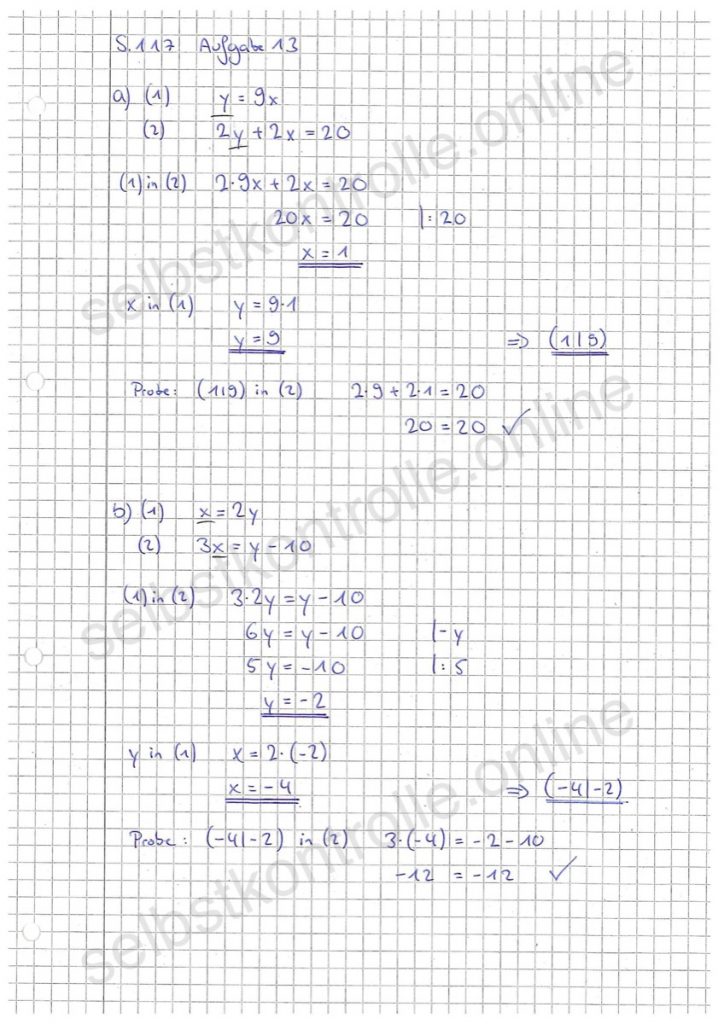 S.117 Aufgabe 13
a) (1) y = 9x
(2) 2y + 2x = 20
(1) in (2) 2·9x + 2x = 20
20x = 20 |: 20
x = 1
x in (1) y = 9·1
y = 9 => (1|9)
Probe: (1|9) in (2) 2·9 + 2·1 = 20
20 = 20 ✓
b) (1) x = 2y
(2) 3x = y - 10
(1) in (2) 3·2y = y - 10
6y = y - 10 |- y
5y = -10 |: 5
y = -2
y in (1) x = 2·(-2)
x = -4 => (-4|-2)
Probe: (-4|-2) in (2) 3·(-4) = -2 - 10
-12 = -12 ✓
selbstkontrolle.online
selbstkontrolle.online
selbstkontrolle.online